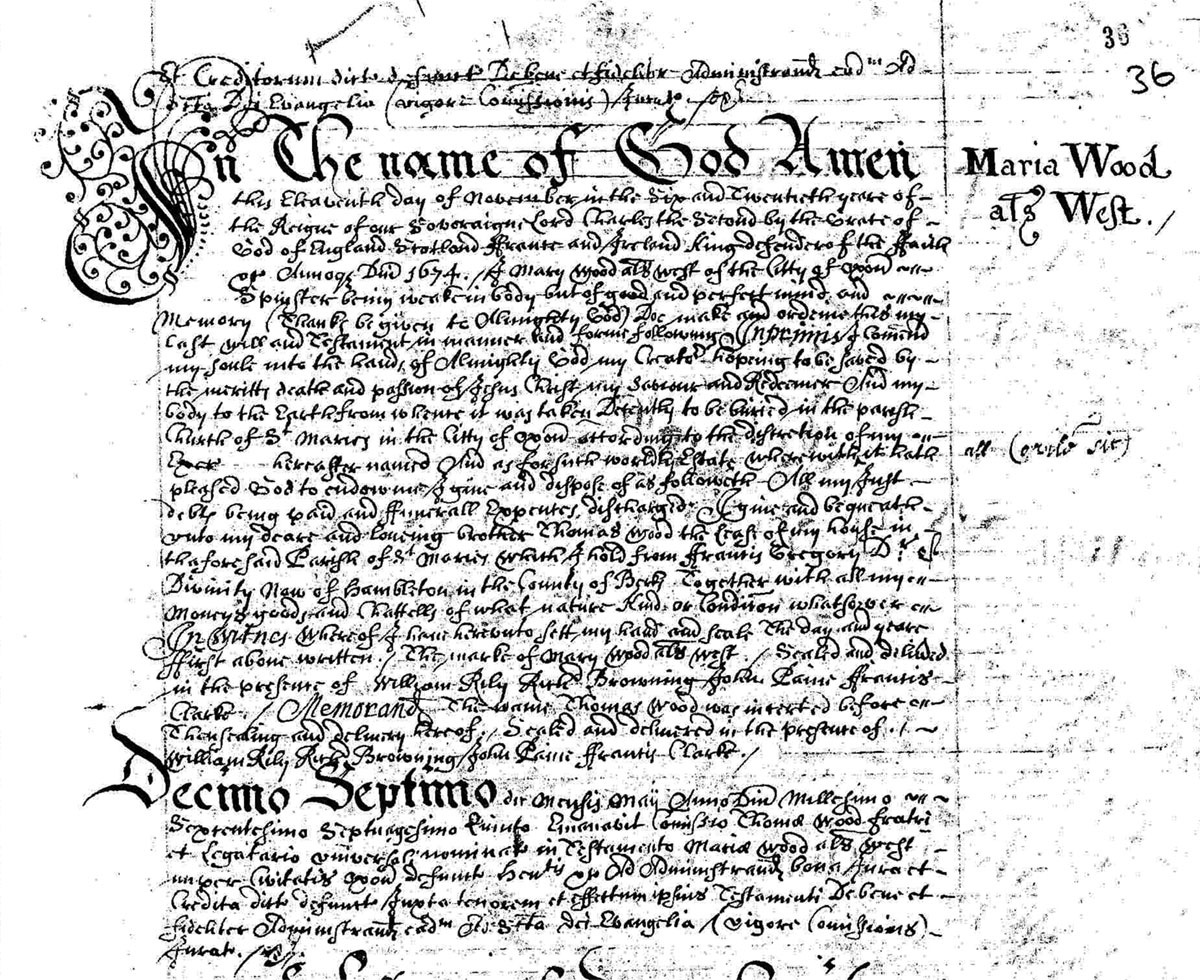 36
36
et Creditorum dicte defuncte De bene et fideliter Administrand eadm Ad
Sancta Dei Evangelia (vigore Comissionis) Jurat
In The name of God Amen
Maria Wood
als West./
this Eleaventh day of November in the Six and Twentieth yeare of
the Reigne of our Soveraigne Lord Charles the Second by the Grace of
God of England Scotland ffrance and Ireland King defender of the ffaith
&c Annoq Dni 1674./ I Mary Wood als West of the Citty of Oxon
Spinster being weake in body but of good and perfect mind and
Memory (Thankes be given to Almighty God) Doe make and ordeine this my
Last Will and Testament in manner and forme following Inprimis I Comend
my soule into the hands of Almighty God my Creator hoping to be saved by
the meritts death and passion of Jesus Christ my Saviour and Redeemer And my
body to the Earth from whence it was taken Decently to be buried in the parish
Church of St Maries in the Citty of Oxon according to the discretion of my
Exer hereafter named And as for such worldly Estate wherewith it hath
all (ovile sic)
pleased God to endow me I give and dispose of as followeth All my Just
debts being paid and ffunerall Expences discharged I give and bequeath
unto my deare and loveing brother Thomas Wood the lease of my house in
thaforesaid Parish of St Maries which I hold from ffrancis Gregory Dr of
Divinity Now of Hambleton in the County of Berks Together with all my
Moneys goods and Chattells of what nature Kind or Condicon whatsoever
In Witnes whereof I have hereunto sett my hand and seale The day and yeare
ffirst above written./ The marke of Mary Wood als West ./ Sealed and delivered
in the presence of William Rily Richd Browning John Paine ffrancis
Clarke ./ Memorand The name Thomas Wood was inserted before
Thensealing and delivery hereof ./ Sealed and delivered in the presence of ./
William Rily Richd Browning John Paine ffrancis Clarke ./
Decimo Septimo die Mensis Maij Anno Dni Millesimo
Sexcentesimo Septuagesimo Quinto Emanavit Comissio Thomæ Wood fratri
et Legatario universali nominat in Testamento Mariæ Wood als West
nuper Civitatis Oxon defuncte hentis &c Ad Administrand bona Jura et
Credita dicte defuncte Juxta tenorem et effectum ipsius Testamenti De bene et
fideliter Administrand eadm Ad Sancta dei Evangelia (vigore Comissionis)
Jurat./